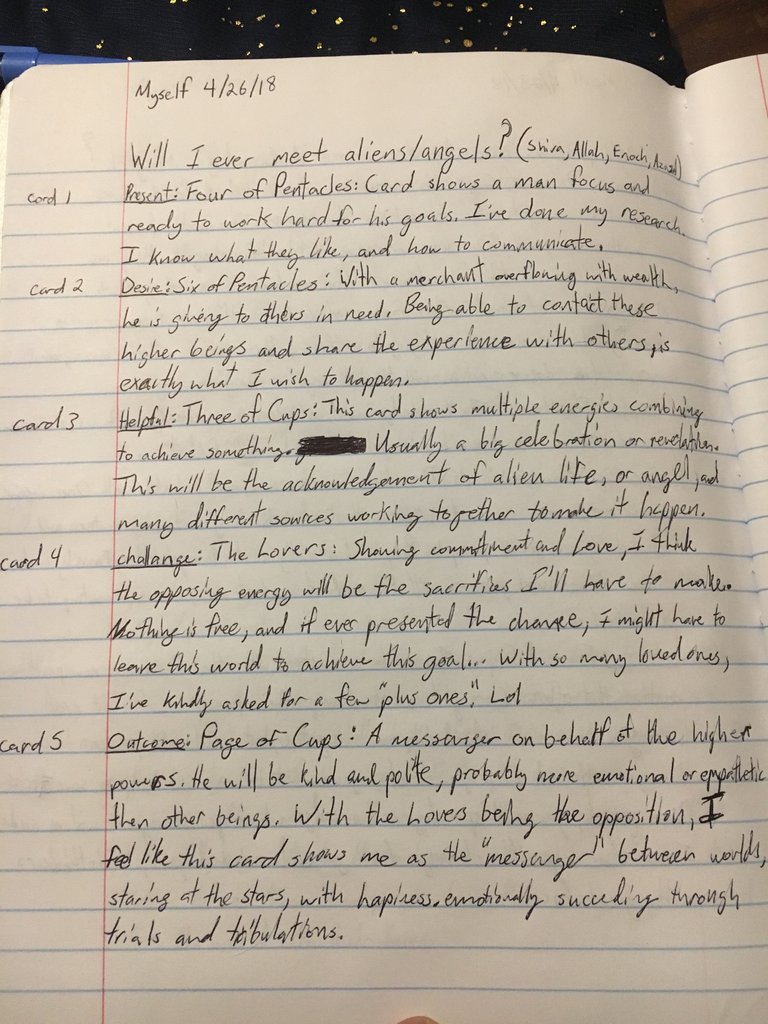 Myself 4/26/18
Will I ever meet aliens/angels? (Shiva, Allah, Enoch,
card 1 Present: Four of Pentacles: Card shows a man focus and
ready to work hard for his goals. I've done my research.
I know what they like, and how to communicate.
card 2 Desire: Six of Pentacles: With a merchant overflowing with wealth,
he is giving to others in need. Being able to contact these
higher beings and share the experience with others, is
exactly what I wish to happen.
card 3 Helpful: Three of Cups: This card shows multiple energies combining
to achieve something. Usually a big celebration or revelation.
This will be the acknowledgement of alien life, or angel, and
many different sources working together to make it happen.
card 4 challange: The Lovers: Showing commitment and love, I think
the opposing energy will be the sacrifices I'll have to make.
Nothing is free, and if ever presented the chance, I might have to
leave this world to achieve this goal... With so many loved ones,
I've kindly asked for a few "plus ones". Lol
card 5 Outcome: Page of Cups: A messanger on behalf of the higher
powers. He will be kind and polite, probably more emotional or empathetic
then other beings. With the Lovers being the opposition, I
feel like this card shows me as the "messanger" between worlds,
staring at the stars, with hapiness. emotionally succeding through
trials and tribulations.